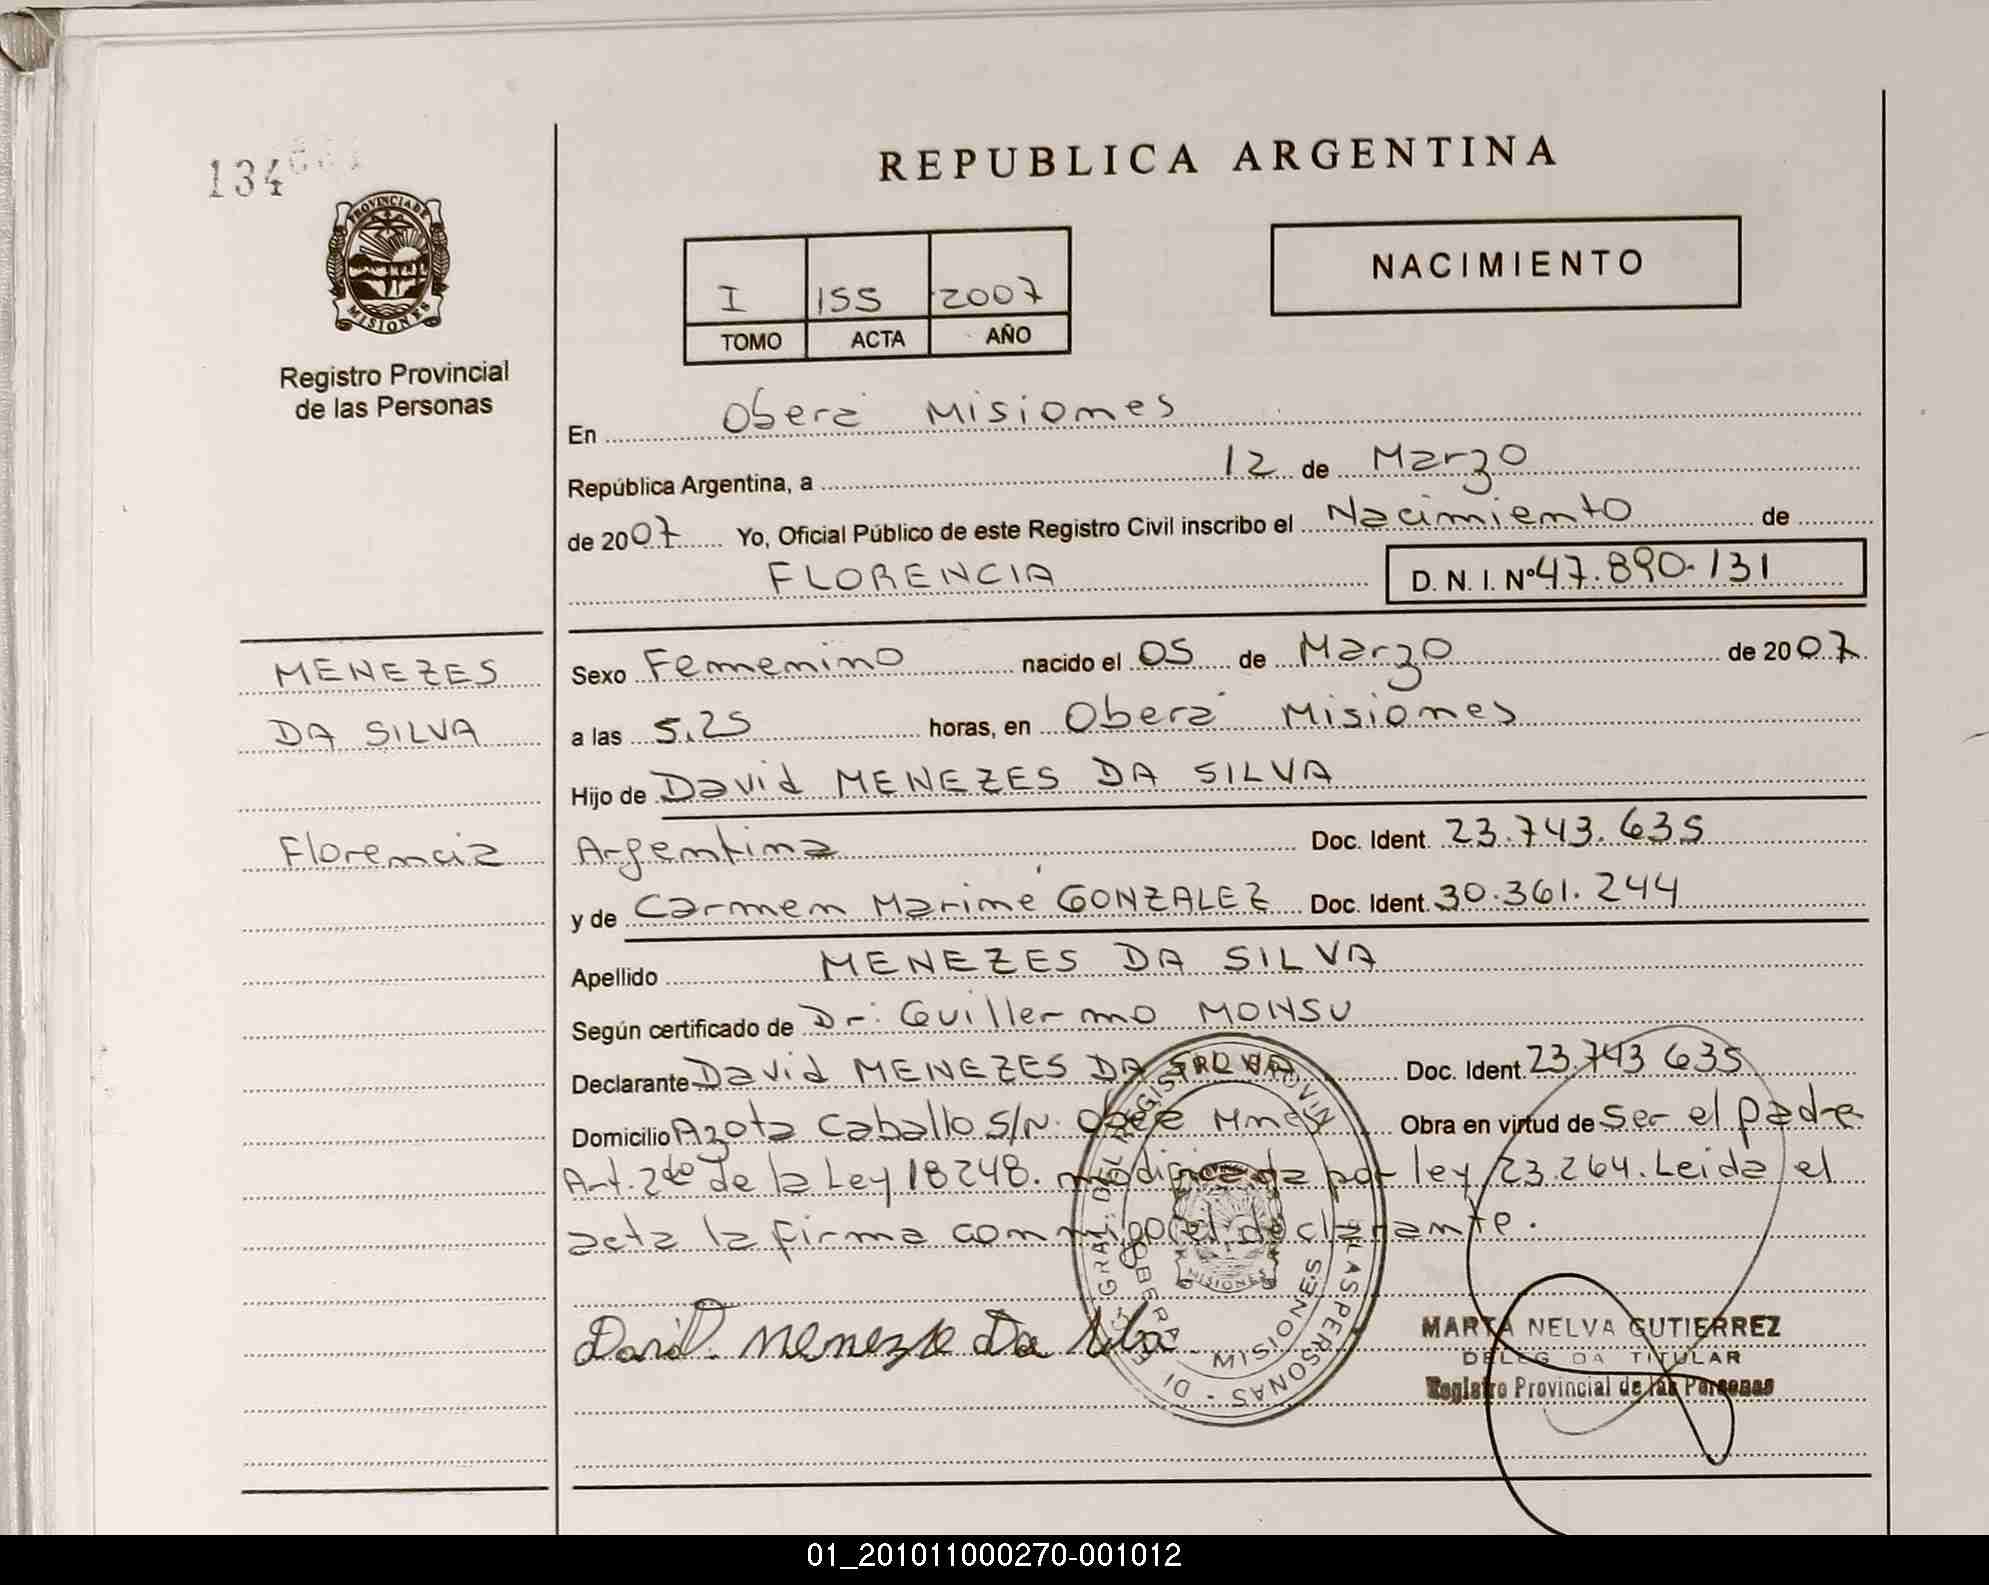 134
REPUBLICA ARGENTINA
PROVINCIA DE
MISIONES
NACIMIENTO
I 155 2007
TOMO ACTA AÑO
Registro Provincial
de las Personas
En Oberá Misiones
República Argentina, a 12 de Marzo
de 2007 Yo, Oficial Público de este Registro Civil inscribo el Nacimiento de
FLORENCIA D. N. I. Nº 47.890.131
MENEZES
DA SILVA
Florencia
Sexo Femenino nacido el 05 de Marzo de 2007
a las 5.25 horas, en Oberá Misiones
Hijo de David MENEZES DA SILVA
Argentina Doc. Ident. 23.743.635
y de Carmen Mariné GONZALEZ Doc. Ident. 30.361.244
Apellido MENEZES DA SILVA
Según certificado de Dr: Guillermo MONSU
Declarante David MENEZES DA SILVA Doc. Ident. 23.743 635
Domicilio Azota Caballo S/N. Mnes Obra en virtud de Ser el padre
Art. 2do de la Ley 18248. modificada por ley 23.264. Leida el
acta la firma conmigo el declarante.
David. Menezes Da Silva
MARTA NELVA GUTIERREZ
DELEGADA TITULAR
Registro Provincial de las Personas
OBERA - MISIONES
MISIONES
01_201011000270-001012